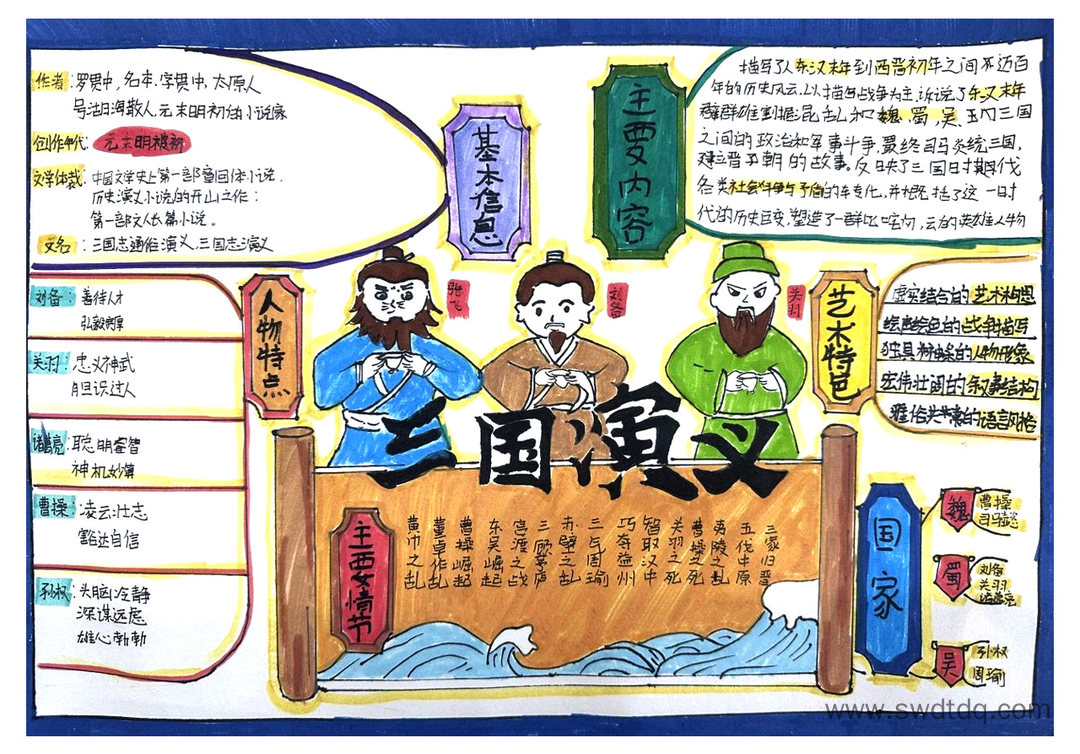 基本信息
作者：罗贯中，名本，字贯中，太原人
号湖海散人，元末明初的小说家
创作年代：元末明被初
文学体裁：中国文学史上第一部章回体小说．
历史演义小说的开山之作：
第一部文人长篇小说。
又名：三国志通俗演义，三国志演义
主要内容
描写了从东汉末年到西晋初年之间不迈百
年的历史风云。以描写战争为主，诉说了东汉末年
群雄割据混乱和魏、蜀、吴、三国
之间的政治和军事斗争，最终司马炎统三国，
建立晋朝的故事。反映了三国时期代
各类社会斗争与矛盾的转化，并概括了这一时
代的历史巨变，塑造了一群叱咤风云的英雄人物
人物特点
刘备：善待人才
弘毅宽厚
关羽：忠义神武
胆识过人
诸葛亮：聪明睿智
神机妙算
曹操：凌云壮志
豁达自信
孙权：头脑冷静
深谋远虑
雄心勃勃
张飞
刘备
关羽
艺术特色
虚实结合的艺术构思
绘声绘色的战争描写
独具神采的人物形象
宏伟壮阔的叙事结构
雅俗共赏的语言风格
三国演义
主要情节
黄巾之乱
董卓作乱
曹操崛起
东吴崛起
官渡之战
三顾茅庐
赤壁之战
三气周瑜
巧夺益州
智取汉中
关羽之死
曹操之死
夷陵之乱
五伐中原
三家归晋
国家
魏
曹操
司马懿
蜀
刘备
关羽
诸葛亮
吴
孙权
周瑜
www.swdtdq.com